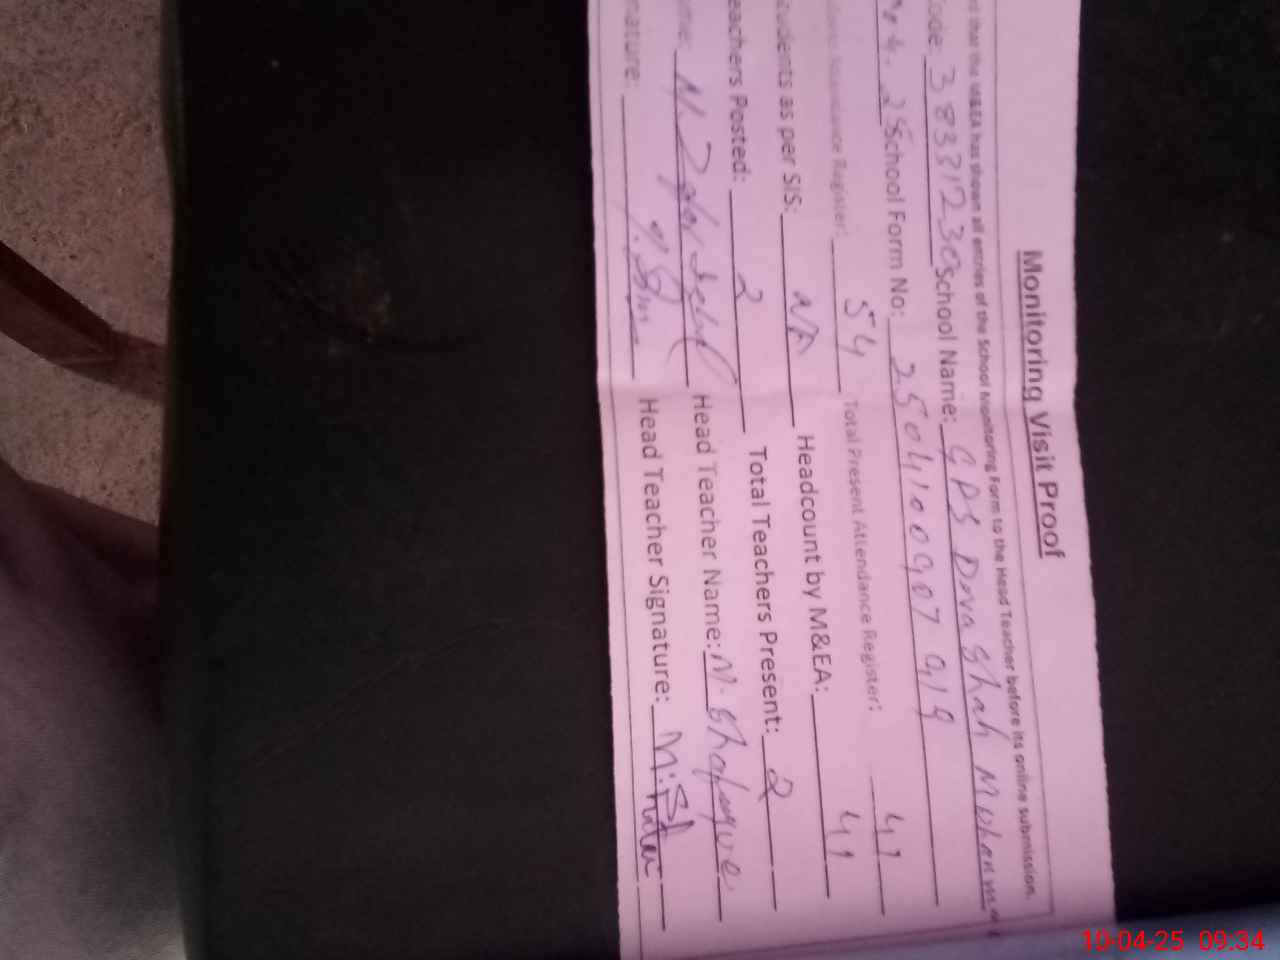 Monitoring Visit Proof
ed that the M&EA has shown all entries of the School Monitoring Form to the Head Teacher before its online submission.
Code: School Name: GPS Dova Shah Muhamm
25 School Form No: 2504100907919
Register: 54 Total Present Attendance Register: 41
tudents as per SIS: NA Headcount by M&EA: 41
eachers Posted: 2 Total Teachers Present: 2
me: Head Teacher Name: M. Shafique
nature: Head Teacher Signature:
10-04-25 09:34